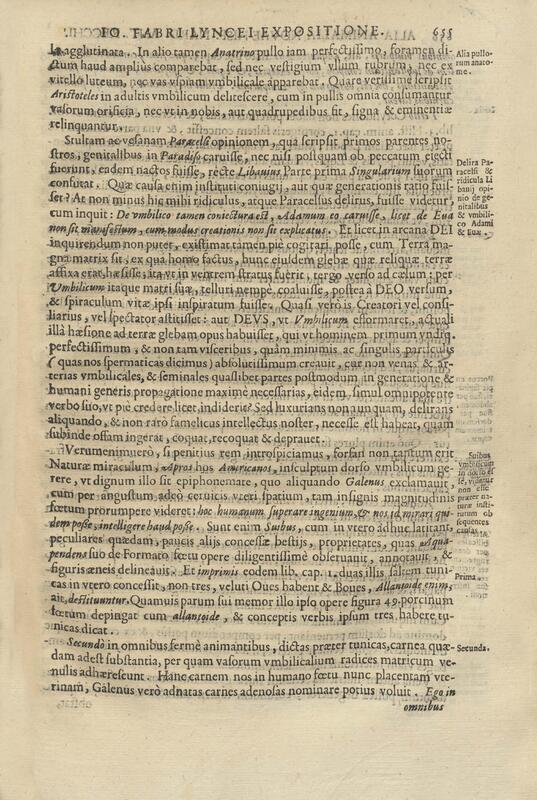 IO. FABRI LYNCEI EXPOSITIONE. 655
la agglutinata. In alio tamen Anatrino pullo iam perfectissimo, foramen di-
ctum haud ampliùs comparebat, sed nec vestigium vllum rubrum, nec ex
vitello luteum, nec vas vspiam vmbilicale apparebat. Quare verissimè scripsit
Aristoteles in adultis vmbilicum delitescere, cum in pullis omnia consumantur
vasorum orificia, nec vt in nobis, aut quadrupedibus fit, signa & eminentiæ
relinquantur.
Alia pullo-
rum anato-
me.
Stultam ac vesanam Paracelsi opinionem, qua scripsit primos parentes no-
stros, genitalibus in Paradiso caruisse, nec nisi postquam ob peccatum eiecti
fuerint, eadem nactos fuisse, rectè Libauius Parte prima Singularium suorum
confutat. Quæ causa enim instituti coniugij, aut quæ generationis ratio fuis-
set? At non minus hic mihi ridiculus, atque Paracelsus delirus, fuisse videtur,
cum inquit: De vmbilico tamen coniectura est, Adamum eo caruisse, licet de Eua
non sit manifestum, cum modus creationis non sit explicatus. Et licet in arcana DEI
inquirendum non putet, existimat tamen piè cogitari posse, cum Terra ma-
gna matrix sit, ex qua homo factus, hunc eiusdem glebæ quæ reliquæ terræ
affixa erat, hæsisse; ita vt in ventrem stratus fuerit, tergo verso ad cælum; per
Vmbilicum itaque matri suæ, telluri nempè, coaluisse, postea à DEO versum,
& spiraculum vitæ ipsi inspiratum fuisse. Quasi verò is Creatori vel consi-
liarius, vel spectator astitisset: aut DEVS, vt Vmbilicum efformaret, actuali
illà hæsione ad terræ glebam opus habuisset, qui vt hominem primum vndiq.
perfectissimum, & non tam visceribus, quàm minimis ac singulis particulis
(quas nos spermaticas dicimus) absolutissimum creauit, cur non venas & ar-
terias vmbilicales, & seminales quaslibet partes postmodum in generatione &
humani generis propagatione maximè necessarias, eidem, simul omnipotente
verbo suo, vt piè credere licet, indiderit? Sed luxurians nonnunquam, delirans
aliquando, & non rarò famelicus intellectus noster, necesse est habeat, quam
subinde offam ingerat, coquat, recoquat & deprauet.
Delira Pa-
racelsi &
ridicula Li
banij opi-
nio de ge-
nitalibus
& vmbili-
co Adami
& Euæ.
Verumenimuerò, si penitius rem introspiciamus, forsan non tantum erit
Naturæ miraculum, Apros hos Americanos, insculptum dorso vmbilicum ge-
rere, vt dignum illo sit epiphonemate, quo aliquando Galenus exclamauit,
cum per angustum adeò ceruicis vteri spatium, tam insignis magnitudinis
fœtum prorumpere videret: hoc humanum superare ingenium, & nos id mirari qui-
dem posse, intelligere haud posse. Sunt enim Suibus, cum in vtero adhuc latitant,
peculiares quædam, paucis alijs concessæ bestijs, proprietates, quas Aqua-
pendens suo de Formato fœtu opere diligentissimè obseruauit, annotauit, &
figuris æneis delineauit. Et imprimis eodem lib. cap. 1. duas illis saltem tuni-
cas in vtero concessit, non tres, veluti Oues habent & Boues, Allantoide enim,
ait, destituuntur. Quamuis parum sui memor illo ipso opere figura 49. porcinum
fœtum depingat cum allantoide, & conceptis verbis ipsum tres habere tu-
nicas dicat.
Suibus
vmbilicum
in dorso es-
se, videtur
non esse
præter na-
turæ insti-
tutum ob
sequentes
causas.
Prima.
Secundò in omnibus fermè animantibus, dictas præter tunicas, carnea quæ-
dam adest substantia, per quam vasorum vmbilicalium radices matricum ve-
nulis adhærescunt. Hanc carnem nos in humano fœtu nunc placentam vte-
rinam, Galenus verò adnatas carnes adenosas nominare potius voluit. Ego in
Secunda.
omnibus